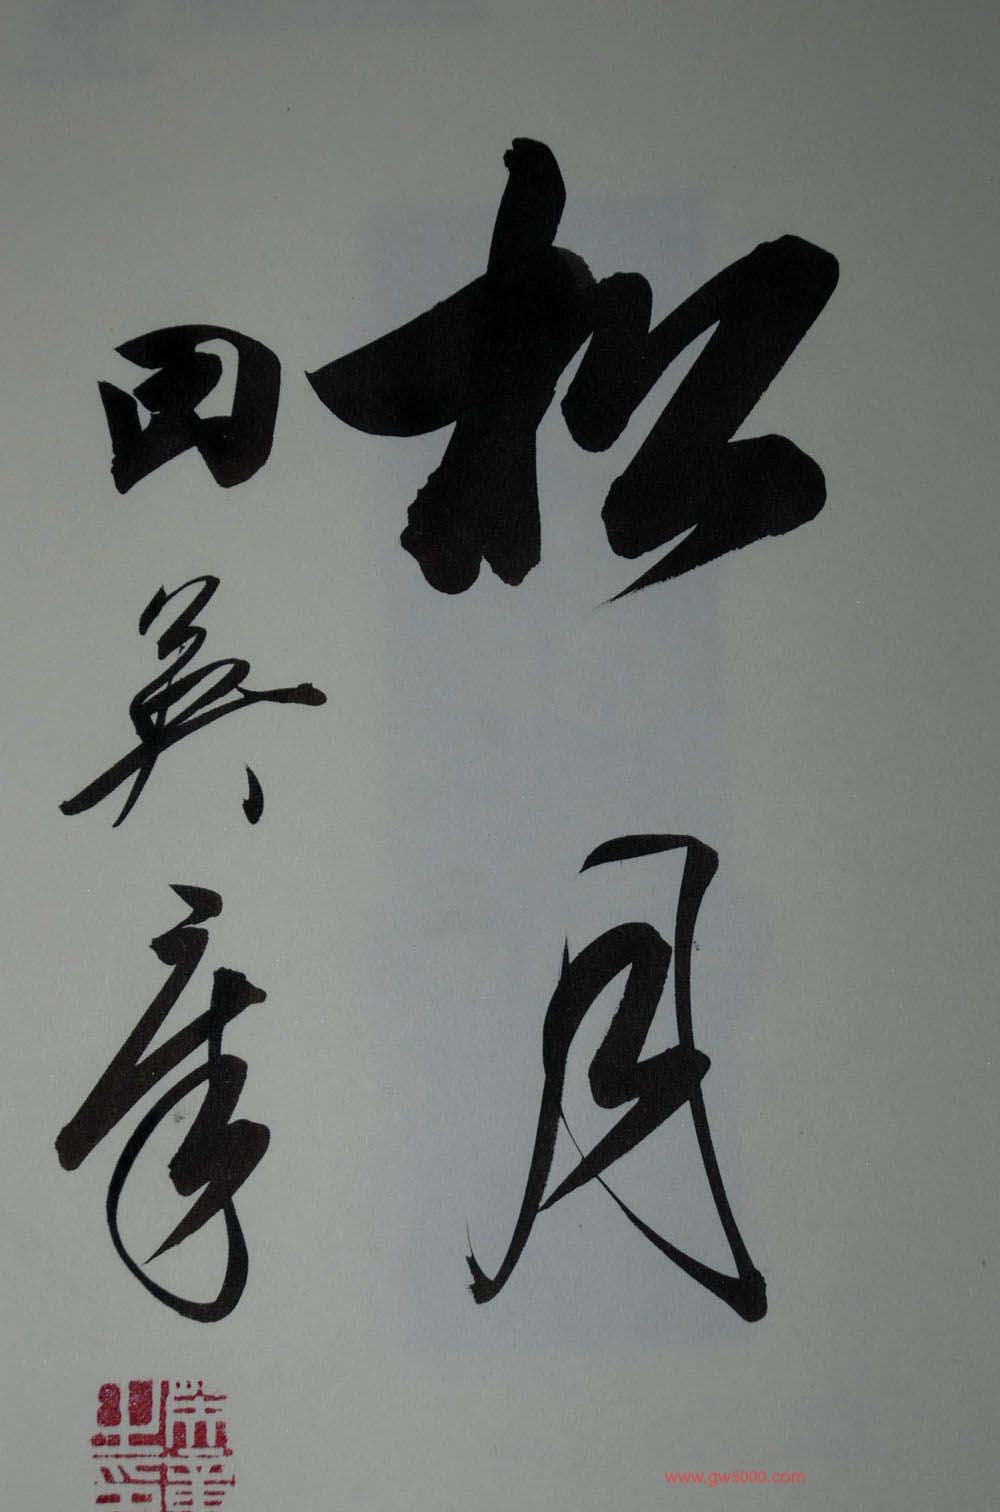 松月
田英章
www.gw5000.com